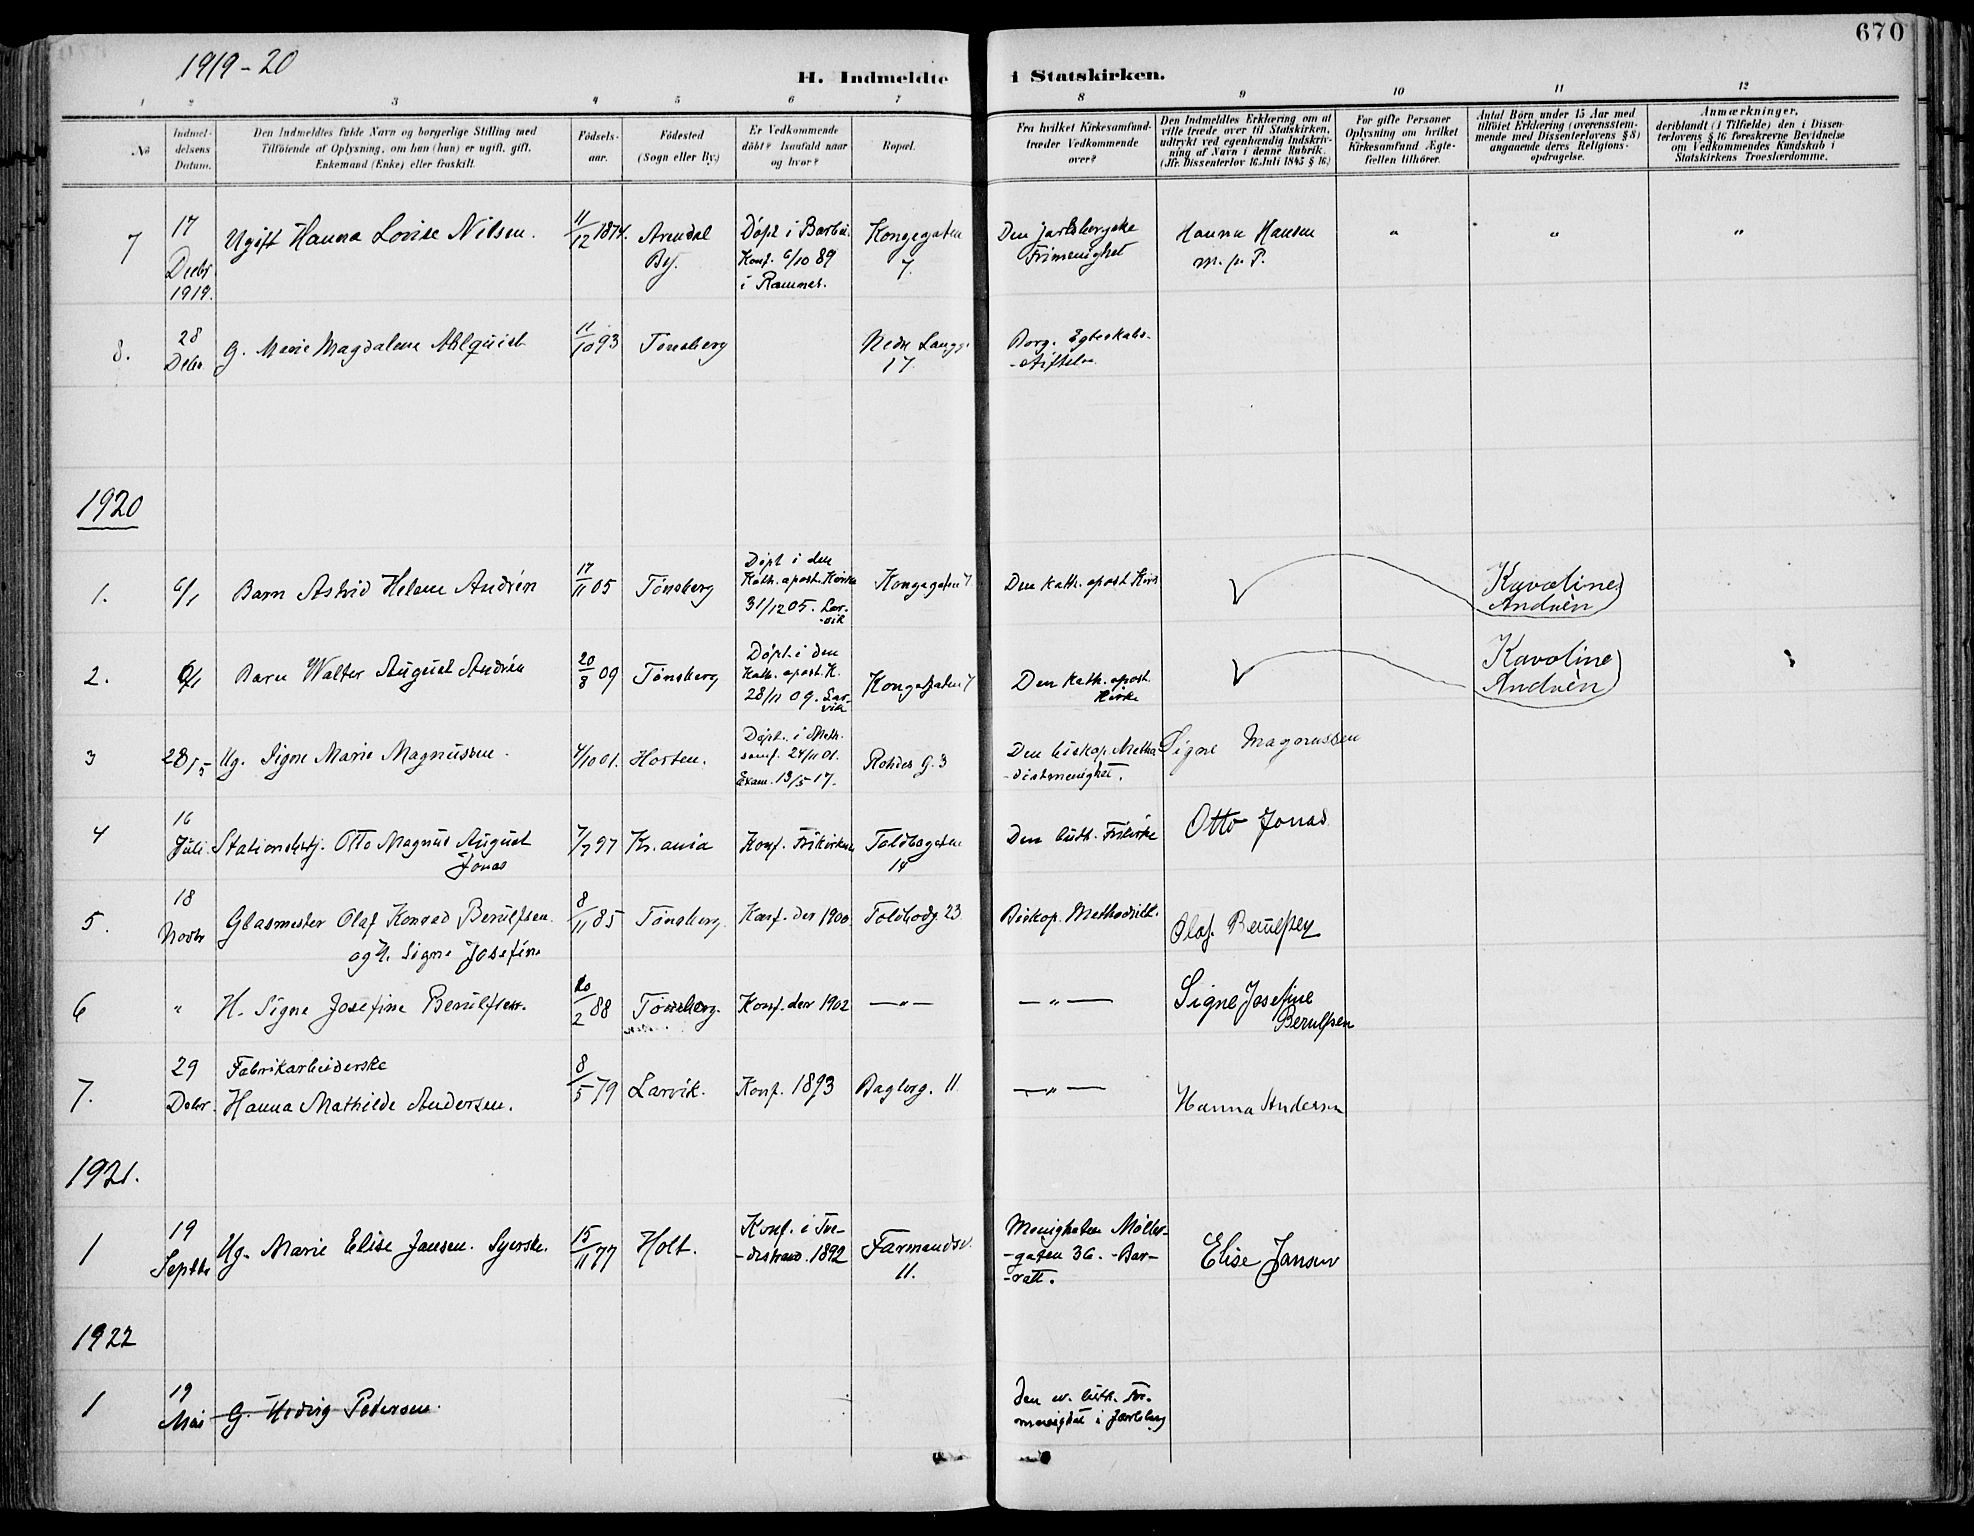 670
1919-20
H. Indmeldte i Statskirken.
1 2 3 4 5 6 7 8 9 10 11 12
No
Indmel-
delsens
Datum.
Den Indmeldtes fulde Navn og borgerlige Stilling med
Tilföiende af Oplysning, om han (hun) er ugift, gift,
Enkemand (Enke) eller fraskilt.
Födsels-
aar.
Födested
(Sogn eller By.)
Er Vedkommende
döbt? Isaafald naar
og hvor?
Bopæl.
Fra hvilket Kirkesamfund
træder Vedkommende
over?
Den Indmeldtes Erklæring om at
ville træde over til Statskirken,
udtrykt ved egenhændig Indskriv-
ning af Navn i denne Rubrik.
(Jfr. Dissenterlov 16. Juli 1845 § 16.)
For gifte Personer
Oplysning om hvilket
Kirkesamfund Ægte-
fællen tilhörer.
Antal Börn under 15 Aar med
tilföiet Erklæring (overensstem-
mende med Dissenterlovens § 8)
angaaende deres Religions-
opdragelse.
Anmærkninger,
deriblandt (i Tilfælde) den i Dissen-
terlovens § 16 foreskrevne Bevidnelse
om Vedkommendes Kundskab i
Statskirkens Troeslærdomme.
7
17
Decbr.
1919.
Ugift Hanna Lovise Nilsen.
11/12 1874.
Arendal
By.
Døpt i Barbu.
Konf. 6/10 89
i Ramnes.
Kongegaten
7.
Den jarlsbergske
Frimenighet
Hanna Hansen
m. p. P.
" " "
8.
28
Debr.
G. Marie Magdalene Ahlquist
11/10 93
Tønsberg
Nedre Langg.
17.
Borg. Egteskabs-
-stiftelse.
1920
1.
6/1
Barn Astrid Helene Andrén
17/11 05
Tönsberg
Døpt i den
Kath. apost. Kirke
31/12 05. Lar-
-vik
Kongegaten 7.
Den kath. apost Kirk
Karoline
Andrèn
2.
6/1
Barn Walter August Andrén
20/8 09
Tönsberg
Døpt. i den
Kath. apost. K.
28/11 09. Lar-
vik
Kongegaten 7
Den kath. apost.
Kirke
Karoline
Andrèn
3
28/5
Ug. Signe Marie Magnussen.
4/10 01.
Horten.
Døpt. i Meth.
samf. 24/11 01.
Exam. 13/5 17.
Rohdes G. 3
Den biskop. Metho
-distmenighet.
Signe Magnussen
4
16
Juli
Stationsbetj. Otto Magnus August
Jonas
7/7 97
Kr.ania
Konf. Frikirken
Toldbogaten
14
Den luth. Frikirke
Otto Jonas
5.
18
Novbr
Glasmester Olaf Konrad Berulfsen
og H. Signe Josefine
8/11 85
Tönsberg.
Konf. der 1900
Toldbodg 23.
Biskop. Methodistk.
Olaf. Berulfsen
6
"
H. Signe Josefine Berulfsen.
20/2 88
Tönsberg.
Konf. der 1902
—"—
—"—
Signe Josefine
Berulfsen
7.
29
Debr.
Fabrikarbeiderske
Hanna Mathilde Andersen.
8/5 79
Larvik.
Konf. 1893
Bagberg. 11
—"—
Hanna Andersen
1921.
1
19
Septbr
Ug. Marie Elise Jansen. Syerske.
15/11 77
Holt.
Konf. i Tve-
-destrand. 1892
Farmandsv.
11.
Menigheten Møller-
-gaten 36. -Bar-
-ratt.
Elise Jansen
1922
1
19
Mai
G. Hedvig Pedersen.
den ev. luth. Fri-
menighet i Jarlsberg